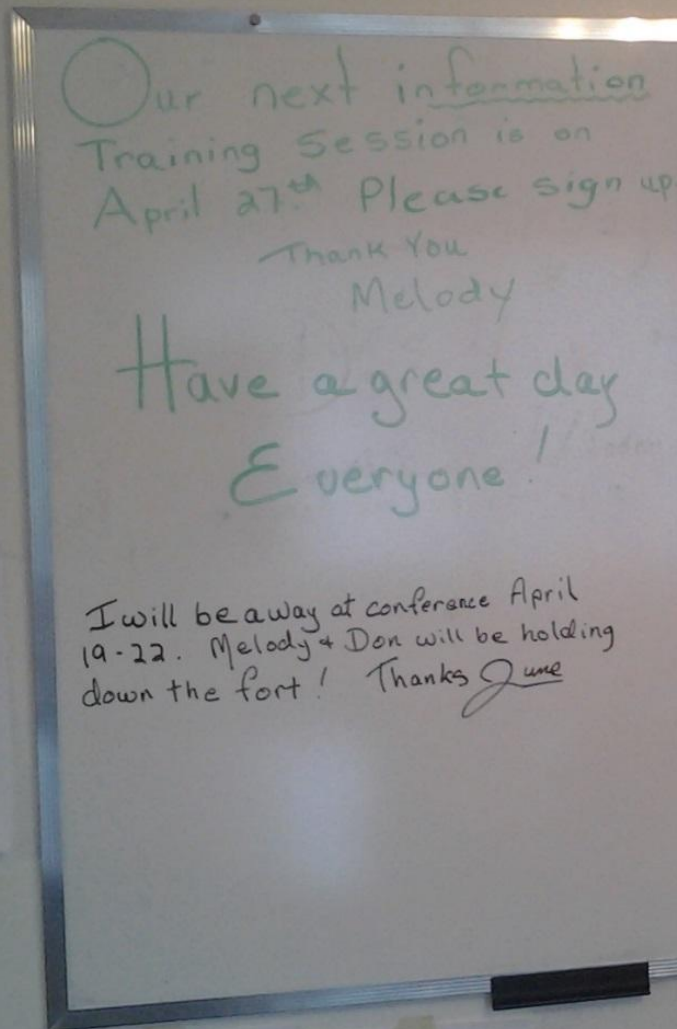 Our next information
Training Session is on
April 27th. Please sign up
Thank You
Melody
Have a great day
Everyone!
I will be away at conference April
19-22. Melody & Don will be holding
down the fort! Thanks June